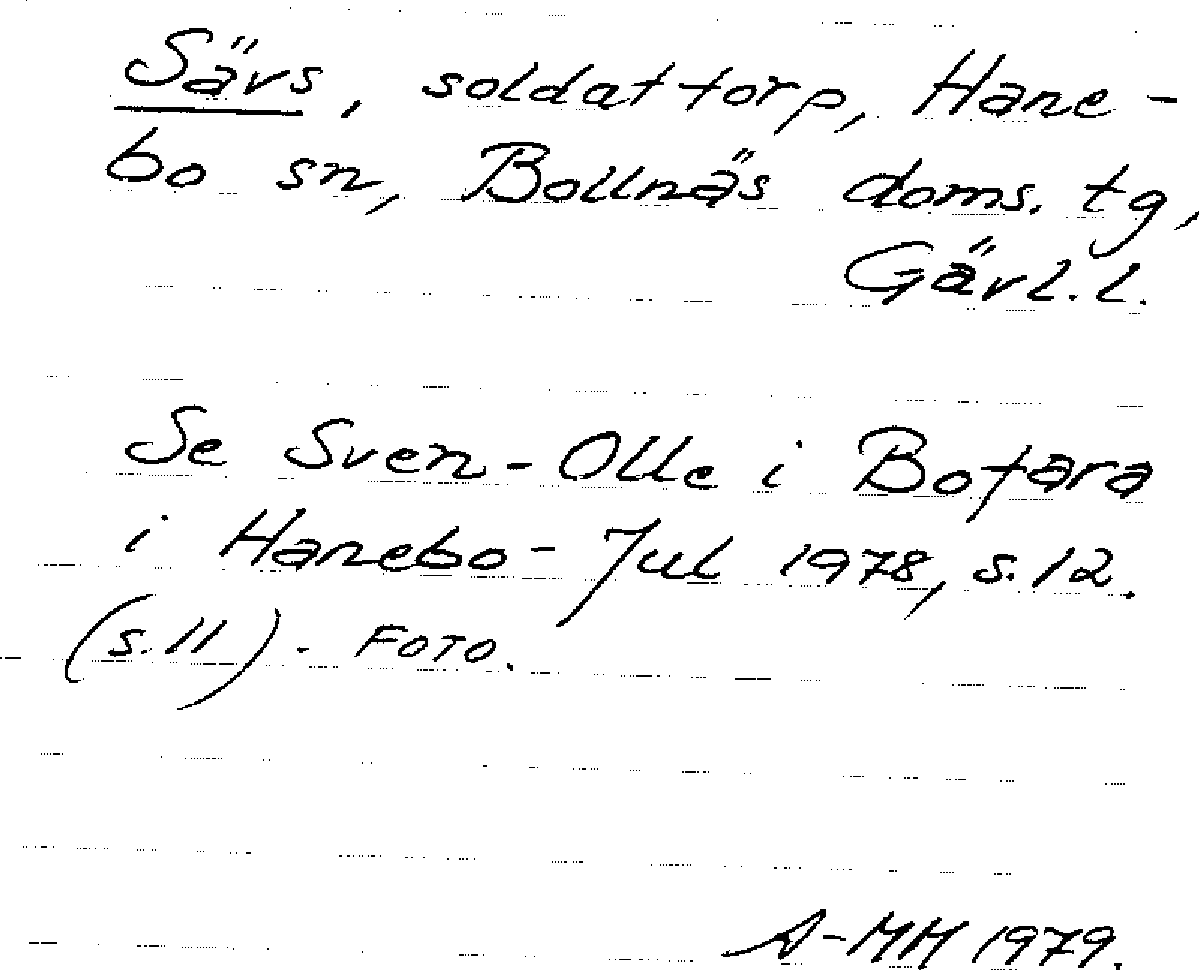 Sävs, soldattorp, Hane-
bo sn, Bollnäs doms. tg,
Gävl. l.
Se Sven-Olle i Bofara
i Hanebo - Jul 1978, s. 12.
(s. 11). FOTO.
A-MM 1979.